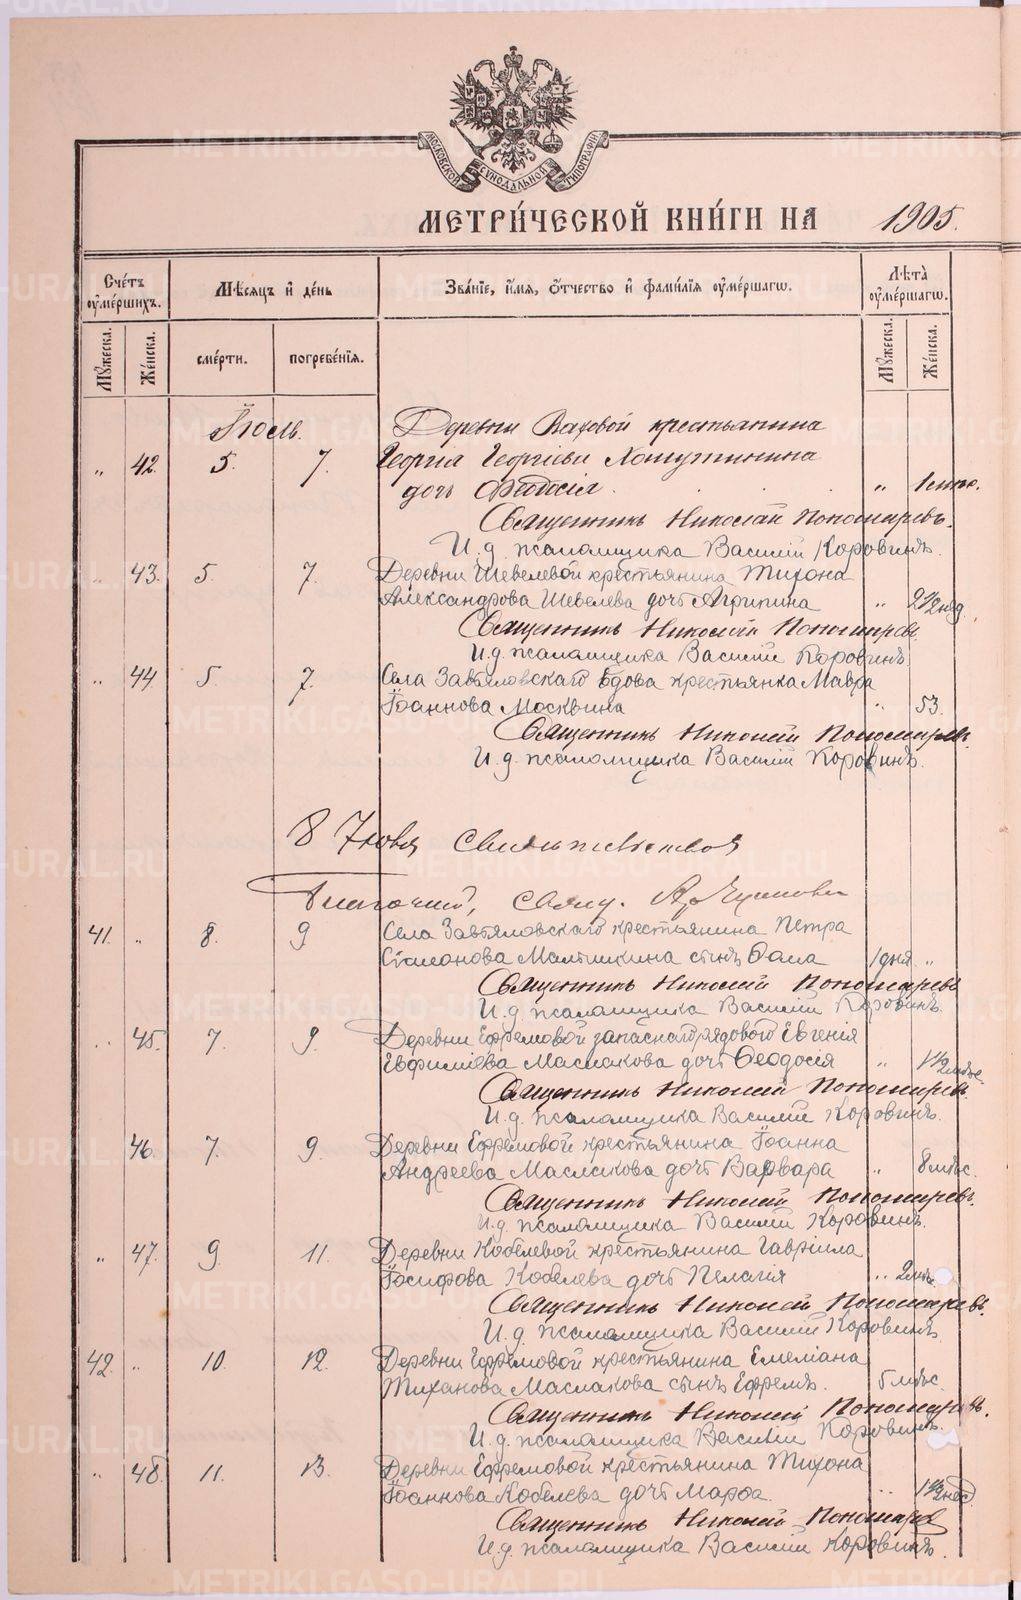 МОСКОВСКОЙ СѴНОДАЛЬНОЙ ТИПОГРАФІИ
МЕТРИ́ЧЕСКОЙ КНИ́ГИ НА 1905.
Сче́тъ ᲂумершихъ.
Мѣсѧцъ и день
Зва́нїе, и́мѧ, ѻ҆́тчество и фами́лїѧ ᲂуме́ршагѡ.
Лѣта̀ ᲂуме́ршагѡ.
Мꙋжеска. Же́нска. сме́рти. погребе́нїѧ. Мꙋжеска. Же́нска.
Іюль. ДеревниВаховой крестьянина
„ 42. 5. 7. Георгія Георгіева
дочь „ 1 мѣс.
Священникъ Николай Пономаревъ.
И.д. псаломщика Василій Коровинъ.
„ 43. 5. 7. Деревни Шевелевой крестьянина Тихона
Александрова Шевелева дочь Агрипина „ 2 1/2 нед.
Священникъ Николай Пономаревъ
И.д. псаломщика Василій Коровинъ.
„ 44 5 7. Села Завьяловскаго вдова крестьянка Мавра
Іоаннова Москвина „ 53.
Священникъ Николай Пономаревъ.
И.д. псаломщика Василій Коровинъ.
8 Іюля Свидѣтельствовалъ
Благочинный, свящ.
41. „ 8. 9 Села Завьяловскаго крестьянина Петра
Маltышкина сынъ 1 дня „
Священникъ Николай Пономаревъ
И.д. псаломщика Василій Коровинъ.
„ 45. 7. 9. Деревни Ефремовой запаснаго рядового Евгенія
Евфиміева Маслакова дочь Ѳеодосія „ 1 1/2 мѣс.
Священникъ Николай Пономаревъ.
И.д. псаломщика Василій Коровинъ.
46. 7. 9. Деревни Ефремовой крестьянина Іоанна
Андреева Маслакова дочь Варвара „ 8 мѣс.
Священникъ Николай Пономаревъ.
И.д. псаломщика Василій Коровинъ.
„ 47. 9. 11. Деревни Кобелевой крестьянина Гавріила
Іосифова Кобелева дочь Пелагія „ 2 мѣс.
Священникъ Николай Пономаревъ.
И.д. псаломщика Василій Коровинъ.
42. „ 10. 12. Деревни Ефремовой крестьянина Емеліана
Тиханова Маслакова сынъ Ефремъ. 5 мѣс.
Священникъ Николай Пономаревъ.
И.д. псаломщика Василій Коровинъ.
„ 48. 11. 13. Деревни Ефремовой крестьянина Тихона
Іоаннова Кобелева дочь Марѳа. „ 1 1/2 нед.
Священникъ Николай Пономаревъ
И.д. псаломщика Василій Коровинъ.
METRIKI.GASO-URAL.RU